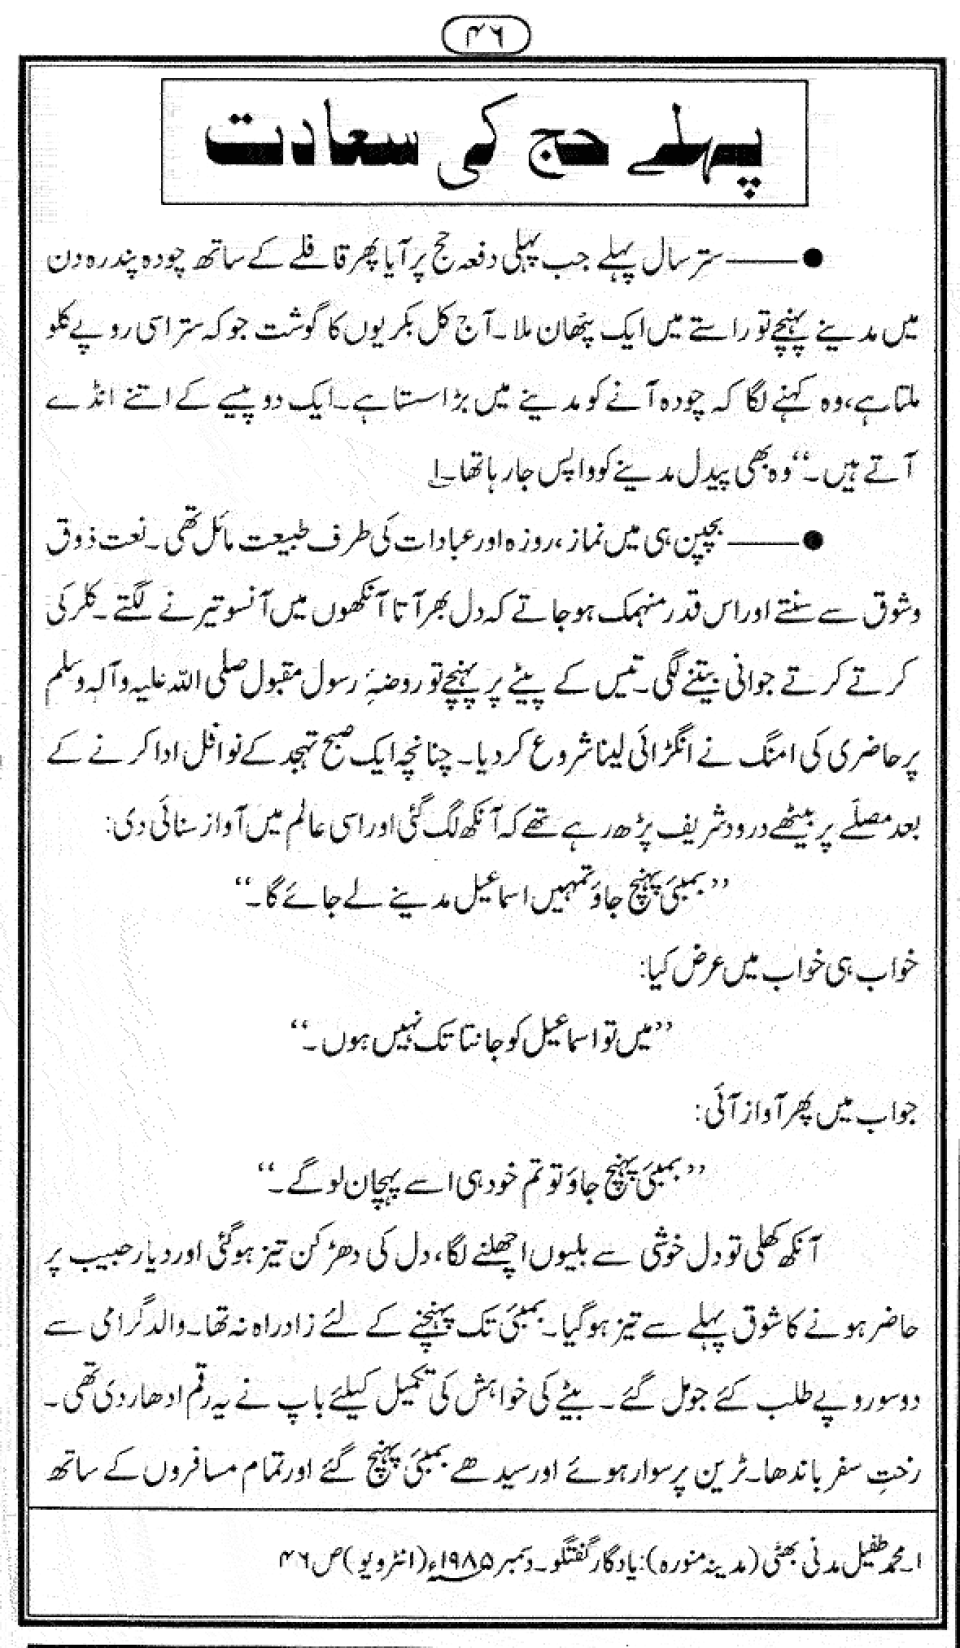 ۴۶
پہلے حج کی سعادت
●——ستر سال پہلے جب پہلی دفعہ حج پر آیا پھر قافلے کے ساتھ چودہ پندرہ دن
میں مدینے پہنچے تو راستے میں ایک پٹھان ملا۔ آج کل بکریوں کا گوشت جو کہ ستر اسی روپے کلو
ملتا ہے، وہ کہنے لگا کہ چودہ آنے کو مدینے میں بڑا سستا ہے۔ ایک دو پیسے کے اتنے انڈے
آتے ہیں۔“ وہ بھی پیدل مدینے کو واپس جا رہا تھا۔ ۱
●——بچپن ہی میں نماز، روزہ اور عبادات کی طرف طبیعت مائل تھی۔ نعت ذوق
و شوق سے سنتے اور اس قدر منہمک ہو جاتے کہ دل بھر آتا آنکھوں میں آنسو تیرنے لگتے۔ کلرکی
کرتے کرتے جوانی بیتنے لگی۔ تیس کے پیٹے پر پہنچے تو روضۂ رسول مقبول صلی اللہ علیہ وآلہ وسلم
پر حاضری کی امنگ نے انگڑائی لینا شروع کر دیا۔ چنانچہ ایک صبح تہجد کے نوافل ادا کرنے کے
بعد مصلّے پر بیٹھے درود شریف پڑھ رہے تھے کہ آنکھ لگ گئی اور اسی عالم میں آواز سنائی دی:
”بمبئی پہنچ جاؤ تمہیں اسماعیل مدینے لے جائے گا۔“
خواب ہی خواب میں عرض کیا:
”میں تو اسماعیل کو جانتا تک نہیں ہوں۔“
جواب میں پھر آواز آئی:
”بمبئی پہنچ جاؤ تو تم خود ہی اسے پہچان لو گے۔“
آنکھ کھلی تو دل خوشی سے بلیوں اچھلنے لگا، دل کی دھڑکن تیز ہو گئی اور دیار حبیب پر
حاضر ہونے کا شوق پہلے سے تیز ہو گیا۔ بمبئی تک پہنچنے کے لئے زاد راہ نہ تھا۔ والد گرامی سے
دو سو روپے طلب کئے جو مل گئے۔ بیٹے کی خواہش کی تکمیل کیلئے باپ نے یہ رقم ادھار دی تھی۔
رختِ سفر باندھا۔ ٹرین پر سوار ہوئے اور سیدھے بمبئی پہنچ گئے اور تمام مسافروں کے ساتھ
۱۔ محمد طفیل مدنی بھٹی (مدینہ منورہ): یادگار گفتگو۔ دسمبر ۱۹۸۵ء (انٹرویو) ص ۴۶